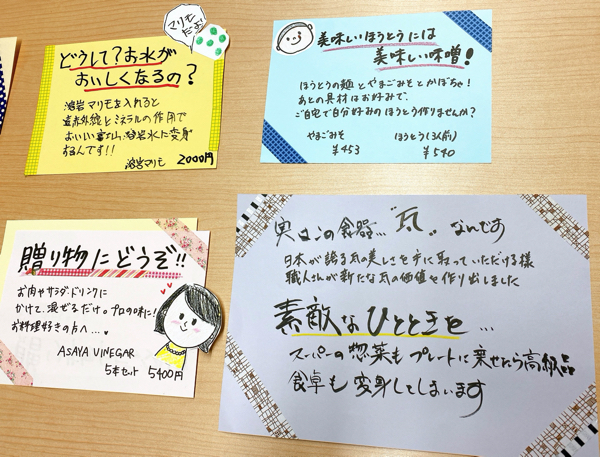 マリモだよ!
どうして?お水が
おいしくなるの?
溶岩マリモを入れると
遠赤外線とミネラルの作用で
おいしい富士山溶岩水に変身
するんです!!
溶岩マリモ 2000円
美味しいほうとうには
美味しい味噌!
ほうとうの麺とやまごみそとかぼちゃ!
あとの具材はお好みで、
ご自宅で自分好みのほうとう作りませんか?
やまごみそ ほうとう(3人前)
¥453 ¥540
贈り物にどうぞ!!
お肉やサラダ、ドリンクに
かけて、混ぜるだけ。プロの味に!
お料理好きの方へ…
ASAYA VINEGAR
5本セット 5400円
実はこの食器…"瓦"なんです
日本が誇る瓦の美しさを手に取っていただける様
職人さんが新たな瓦の価値を作り出しました
素敵なひとときを…
スーパーの惣菜もプレートに乗せたら高級品
食卓も変身してしまいます